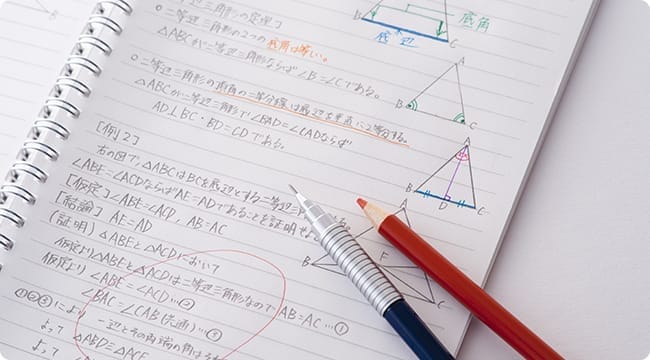 二等辺三角形の定理】
○二等辺三角形の2つの底角は等しい。
△ABCが二等辺三角形ならば∠B=∠Cである。
○二等辺三角形の頂角の二等分線は底辺を垂直に2等分する。
△ABCが二等辺三角形で∠BAD=∠CADならば
AD⊥BC・BD=CDである。
[例2]
右の図で、△ABCはBCを底辺とする二等辺三
∠ABE=∠ACDならばAE=ADであることを証明せよ
[仮定]∠ABE=∠ACD、AB=AC
[結論] AE=AD
(証明) △ABEと△ACDにおいて
仮定より△ABEと△ACDは二等辺三角形なのでAB=AC…①
仮定より ∠ABE=∠ACD…②
∠BAC=∠CAB(共通)…③
①②③により 一辺とその両端の角は
よって △ABD≡△ACE
よって
底角
底辺
B
C
A
B
C
A
B
D
C
A
B
F
C